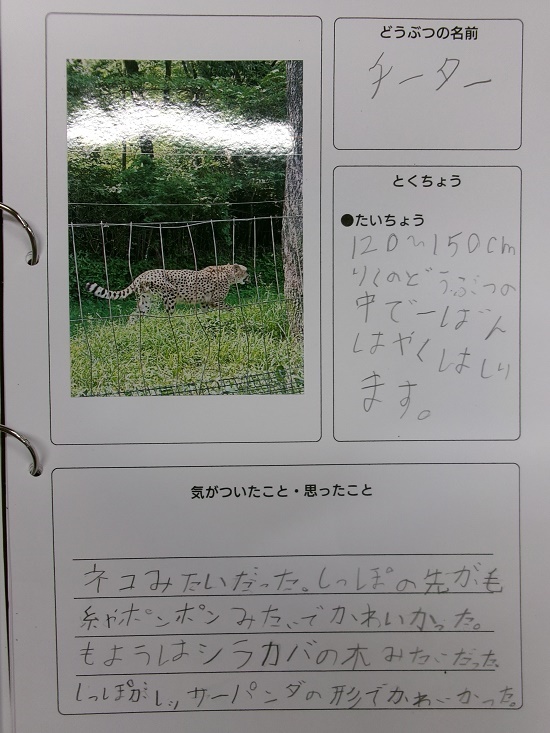 どうぶつの名前
チーター
とくちょう
●たいちょう
120~150cm
りくのどうぶつの
中で一ばん
はやくはしり
ます。
気がついたこと・思ったこと
ネコみたいだった。しっぽの先が毛
糸やポンポンみたいでかわいかった。
もようはシラカバの木みたいだった
しっぽがレッサーパンダの形でかわいかった。